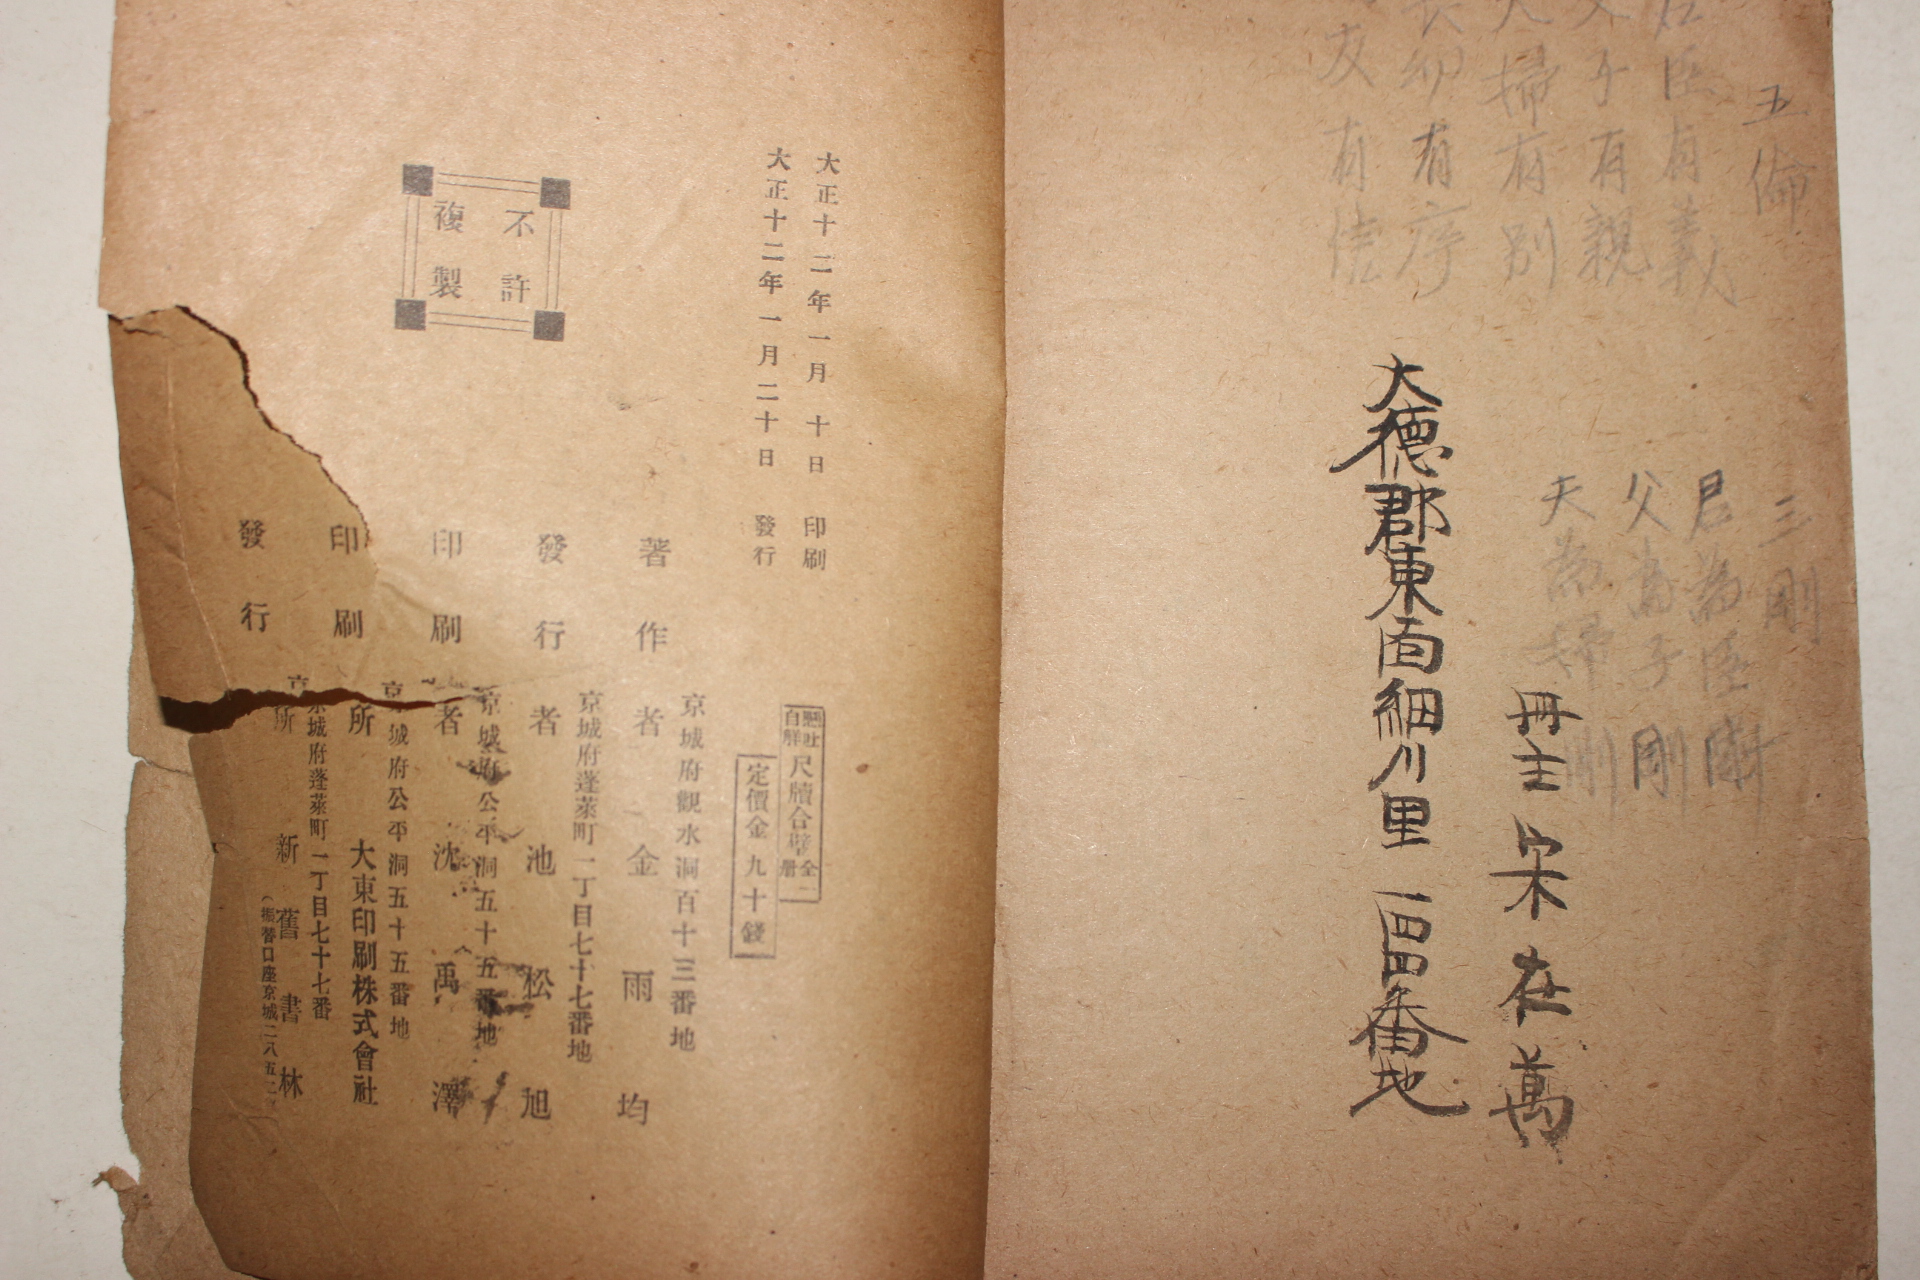 五倫
君臣有義
父子有親
夫婦有別
長幼有序
友有信
三剛
君為臣剛
父為子剛
夫為婦剛
冊主 宋在萬
大德郡東面細川里 一四四番地
大正十二年一月 十日 印刷
大正十二年一月二十日 發行
不許
複製
懸吐
自解
尺牘合璧
全一
冊
定價金九十錢
京城府觀水洞百十三番地
著作者 金雨均
京城府蓬萊町一丁目七十七番地
發行者 池松旭
京城府公平洞五十五番地
印刷者 沈禹澤
京城府公平洞五十五番地
印刷所 大東印刷株式會社
京城府蓬萊町一丁目七十七番
發行所 新舊書林
(振替口座京城二八五二